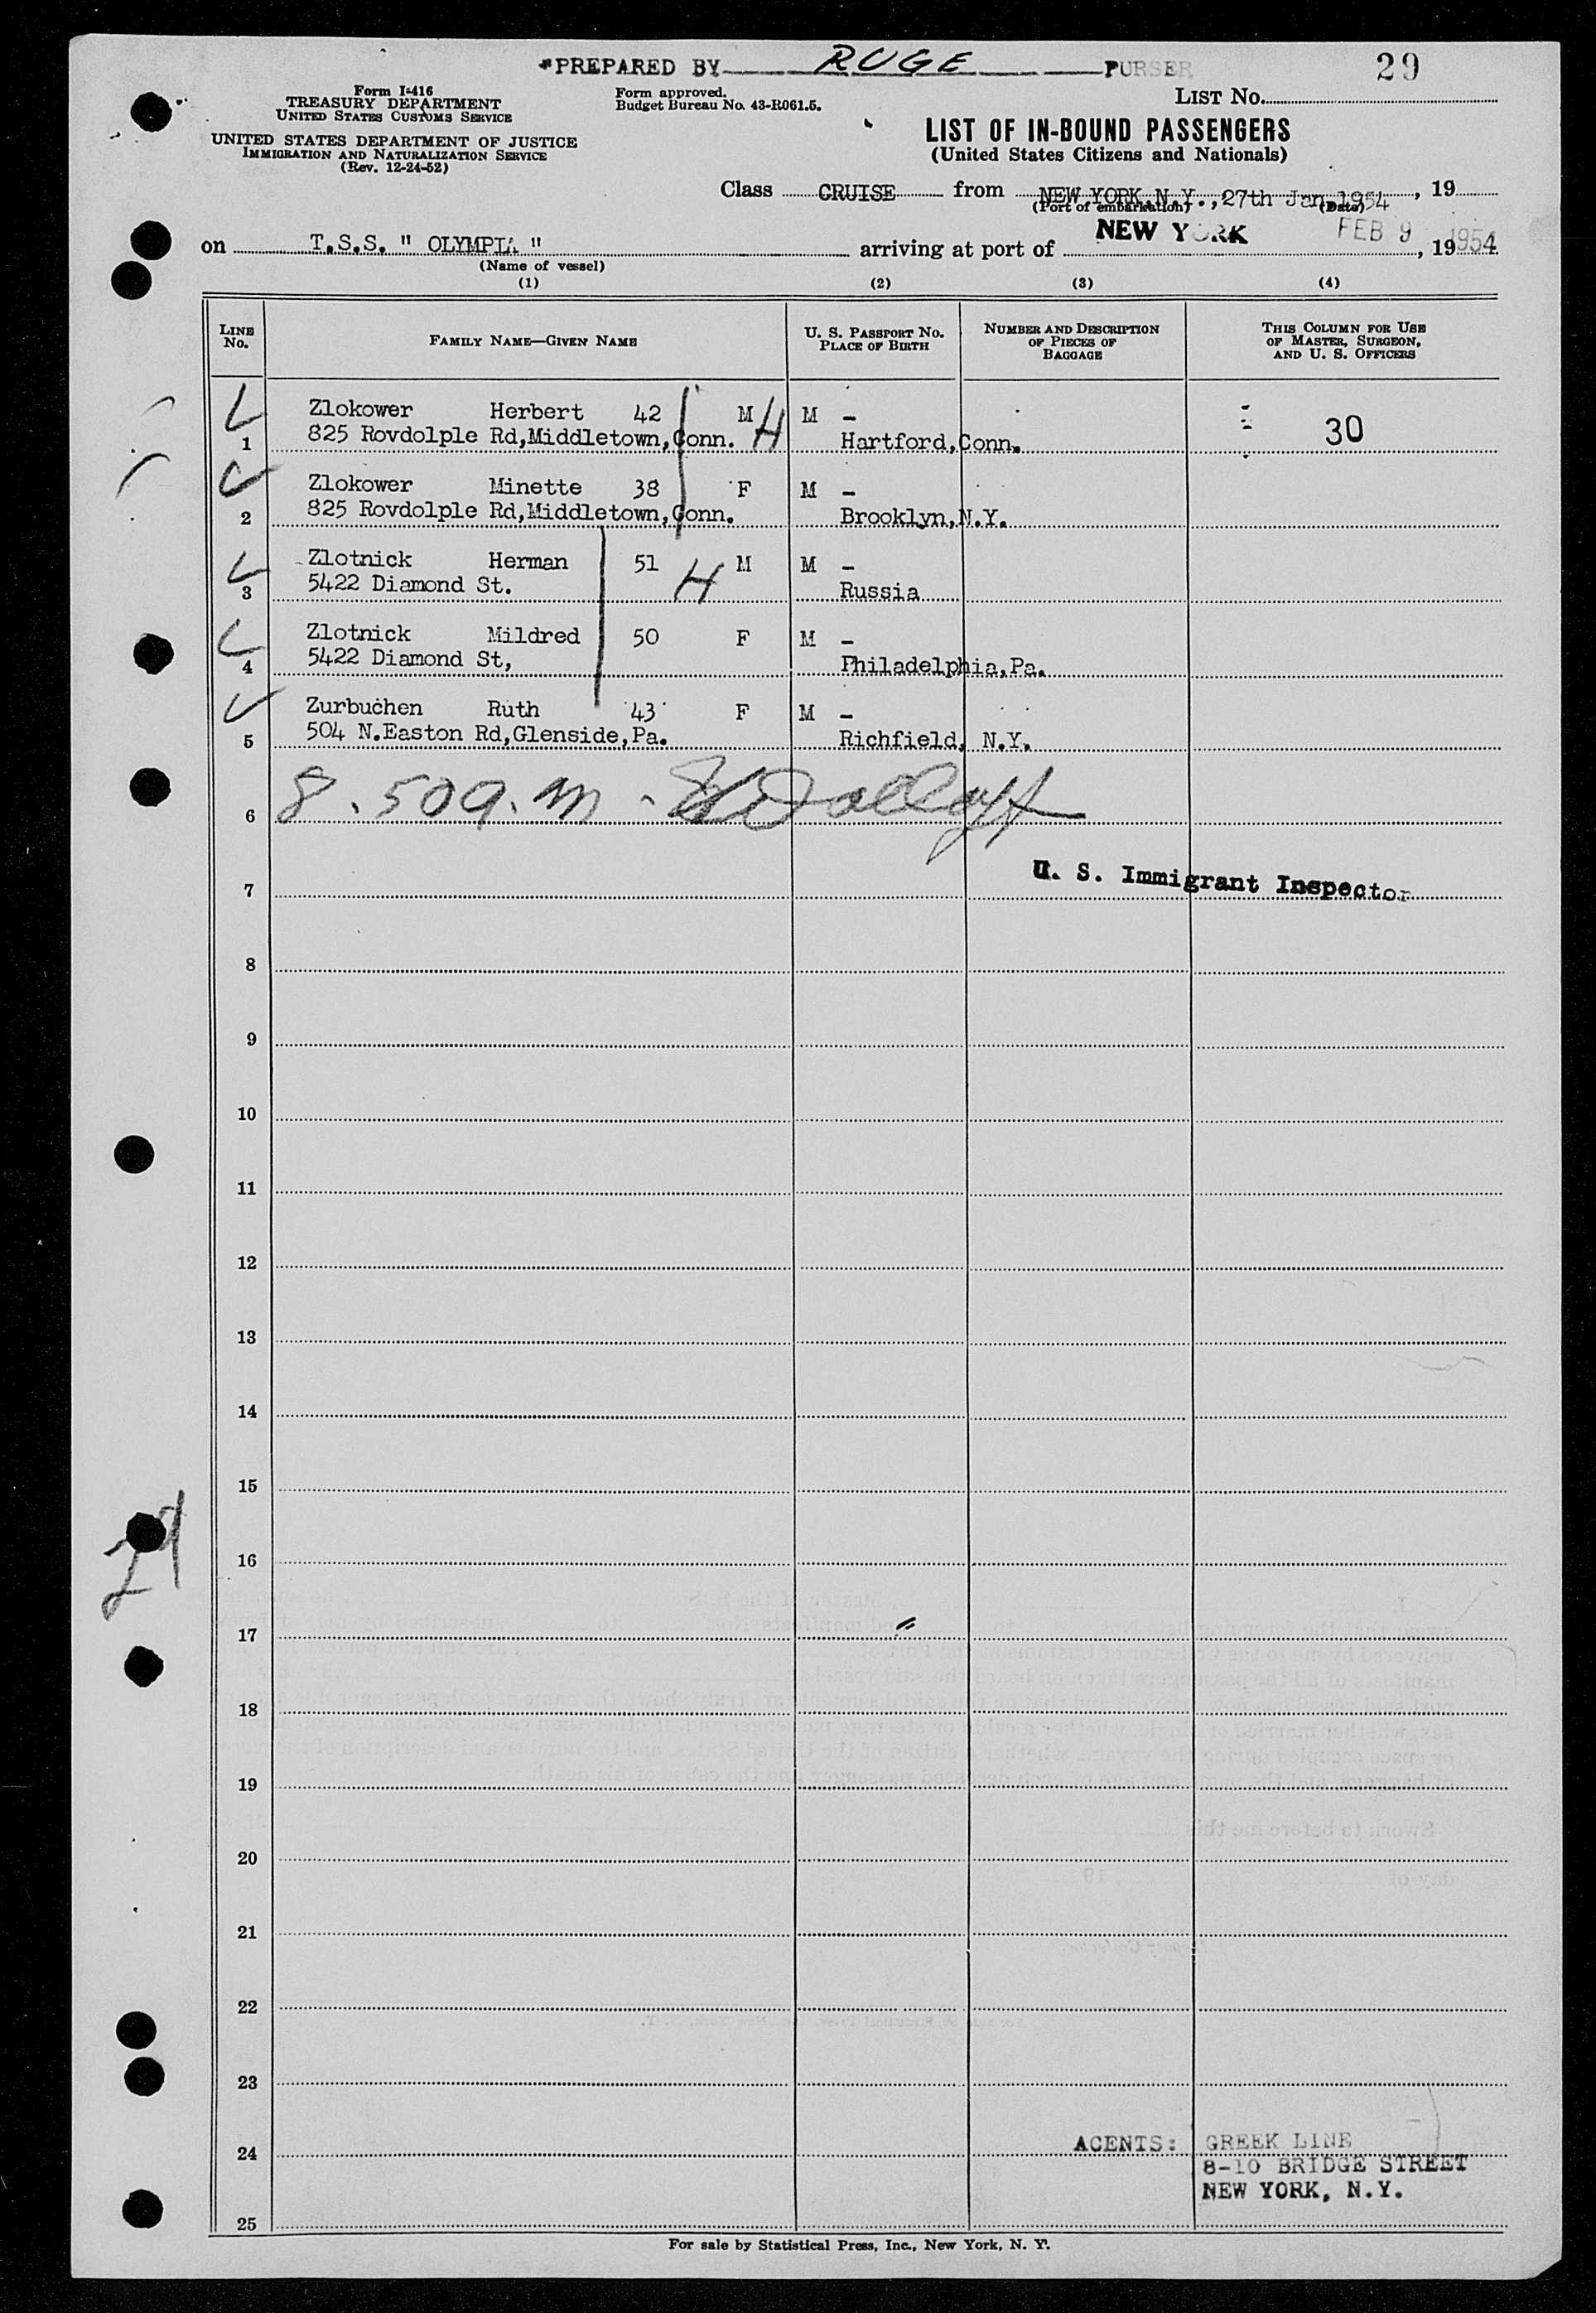 *PREPARED BY RUGE PURSER
29
Form I-416
TREASURY DEPARTMENT
UNITED STATES CUSTOMS SERVICE
UNITED STATES DEPARTMENT OF JUSTICE
IMMIGRATION AND NATURALIZATION SERVICE
(Rev. 12-24-52)
Form approved.
Budget Bureau No. 43-R061.5.
LIST No.
LIST OF IN-BOUND PASSENGERS
(United States Citizens and Nationals)
Class CRUISE from NEW YORK,N.Y.,27th Jan.1954, 19
(Port of embarkation) (Date)
on T.S.S. " OLYMPIA " arriving at port of NEW YORK FEB 9, 19 1954
(Name of vessel)
(1) (2) (3) (4)
LINE NO. FAMILY NAME—GIVEN NAME U. S. PASSPORT NO. PLACE OF BIRTH NUMBER AND DESCRIPTION OF PIECES OF BAGGAGE THIS COLUMN FOR USE OF MASTER, SURGEON, AND U. S. OFFICERS
Zlokower Herbert 42 M H M - 30
1 825 Rovdolple Rd,Middletown,Conn. Hartford,Conn.
Zlokower Minette 38 F M -
2 825 Rovdolple Rd,Middletown,Conn. Brooklyn,N.Y.
Zlotnick Herman 51 H M M -
3 5422 Diamond St. Russia
Zlotnick Mildred 50 F M -
4 5422 Diamond St, Philadelphia,Pa.
Zurbuchen Ruth 43 F M -
5 504 N.Easton Rd,Glenside,Pa. Richfield, N.Y.
6 8.50 a.m -
U. S. Immigrant Inspector
7
8
9
10
11
12
13
14
15
29
16
17
18
19
20
21
22
23
24 AGENTS: GREEK LINE
8-10 BRIDGE STREET
NEW YORK, N.Y.
25
For sale by Statistical Press, Inc., New York, N. Y.